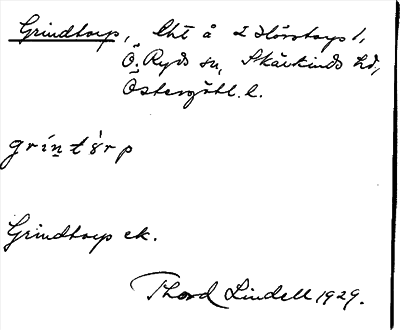 Grindtorp, Lht å 2 Hörstorp 1,
Ö. Ryds sn, Skärkinds hd,
Östergötl. l.
gríṉtörp
Grindtorp ek.
Thord Lindell 1929.